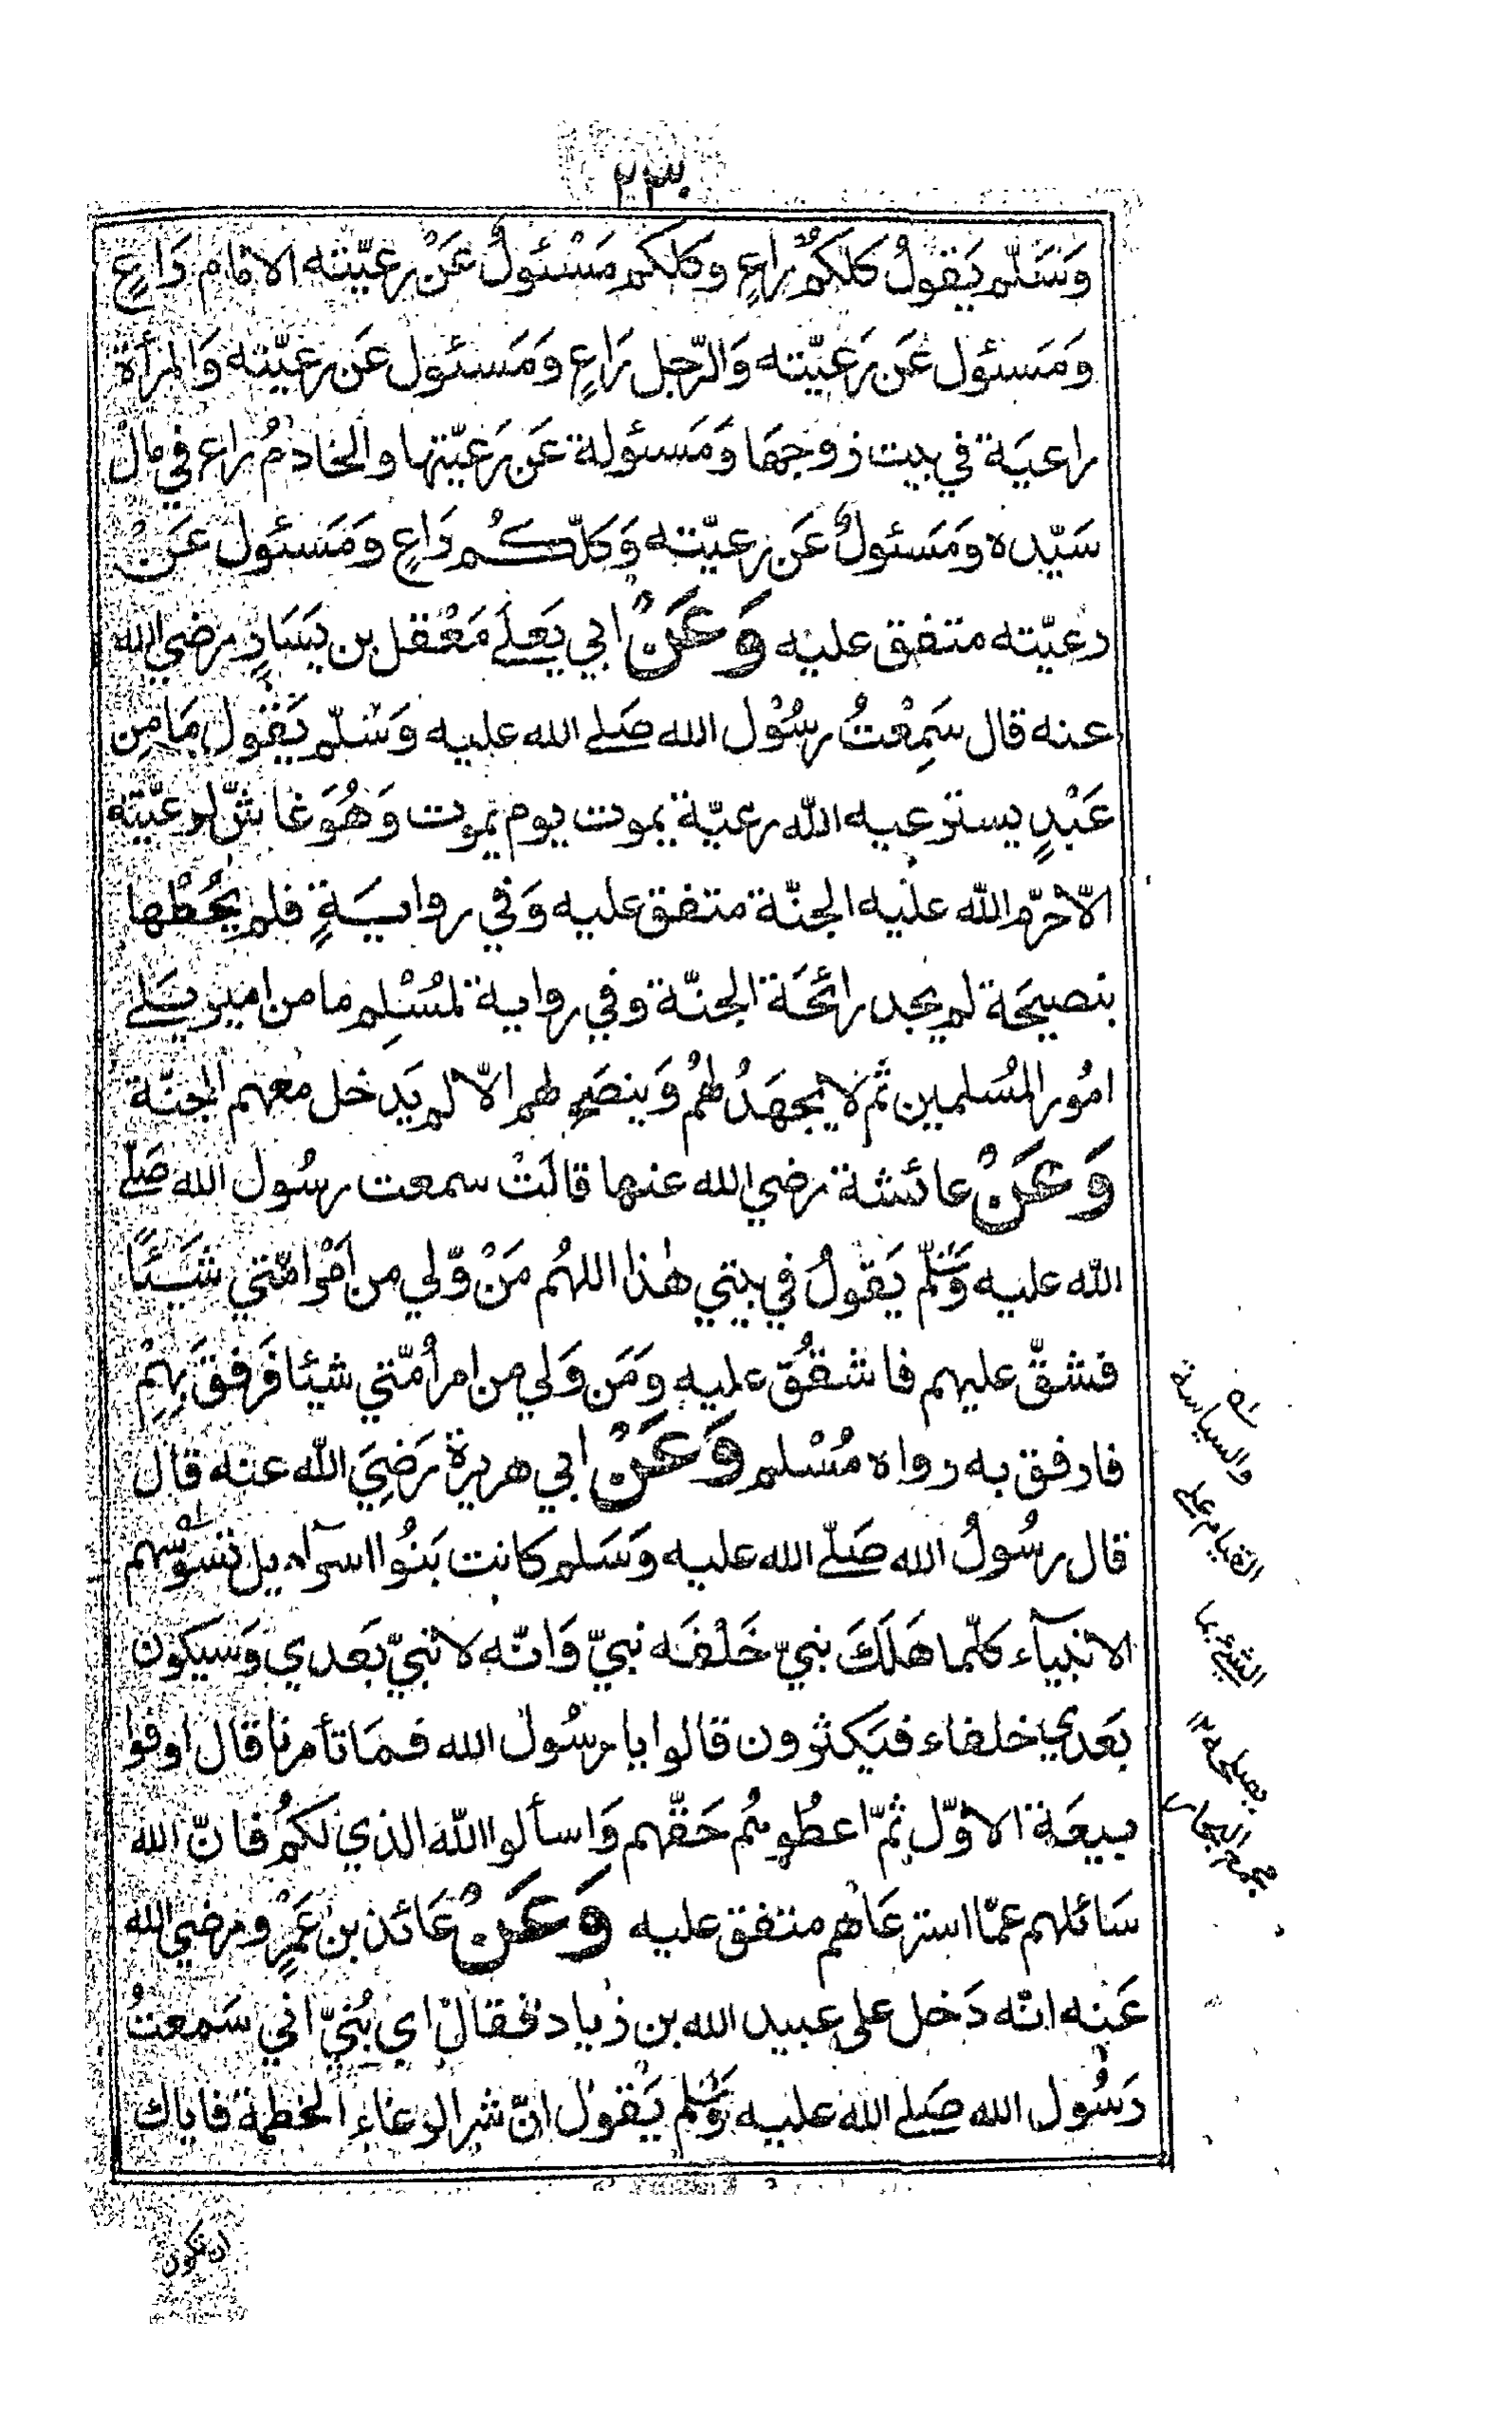 ٢٣٠
وَسَلّم يَقولُ كلكمُ راعٍ وكلكم مَسْئولُ عَنْ رعيّته الامام رَاعٍ
وَمَسئول عَن رَعيّته وَالرّجل رَاعٍ وَمَسئول عَن رعيّته وَالمرأة
راعيَة في بيت زوجهَا وَمَسئولة عَن رَعيّتها والخادمُ راع في مال
سَيّده وَمَسئولٌ عَن رعيّته وَكلّكُم رَاعٍ وَمَسئول عَنْ
رعيّته متفق عليه وَعَنْ ابي يَعلَے مَعْقل بن يَسَارٍ رضي الله
عنه قال سَمِعْتُ رسُوْل الله صَلے الله عليه وَسَلّم يَقول مَامِن
عَبْدٍ يسترعيه الله رعيّة يموت يوم يموت وَهُوَ غاشّ لرعيّته
الاّ حرّم الله عليه الجنّة متفق عليه وَفي روايَةٍ فلم يَحُطْها
بنصيحَة لم يجد رائحَة الجنّة وفي رواية لمُسْلِم ما من امير يَلے
امُور المُسلمين ثمّ لا يجهَدُ لهُمْ وَينصَح لهم الاّ لم يَدخل معهم الجنّة
وَعَنْ عائشة رضي الله عنها قالَتْ سمعت رسُول الله صَلّے
الله عليه وَسَلّم يَقولُ في بيتي هٰذا اللهُم مَنْ وّلي من اَمْر امّتي شَيْئًا
فشقّ عليهم فاشقُقْ عليه وَمَن وَلي من امر أمّتي شيئا فَرفقَ بِهِمْ
فارفق به رواه مُسْلم وَعَنْ ابي هريرة رَضِيَ الله عنه قال
قال رسُولُ الله صَلّے الله عليه وَسَلم كانت بَنُوا اسرآءيل تسُوسُهم
الانبيآء كلّما هَلَكَ نبيّ خَلْفَه نبيّ وَانّه لا نبيّ بَعدي وَسيكون
بَعدي خلفاء فيَكثرون قالوا يا رسُول الله فمَا تأمرنا قال اوفوا
ببيعَة الاوّل ثمّ اعطُوهُم حَقّهم وَاسألوا الله الذي لكمُ فانّ الله
سَائلهم عمّا استرعَاهم متفق عليه وَعَنْ عَائذ بن عَمْرٍو رضي الله
عَنه انّه دَخل على عبيد الله بن زياد فقال اي بُنيّ اني سَمعتُ
رَسُول الله صَلے الله عليه وَسَلم يَقول انّ شر الرعاء الحطمة فاياك
ان تكون
والسياسة
القيام على
الشئ بما
يصلحه
مجمع البحار